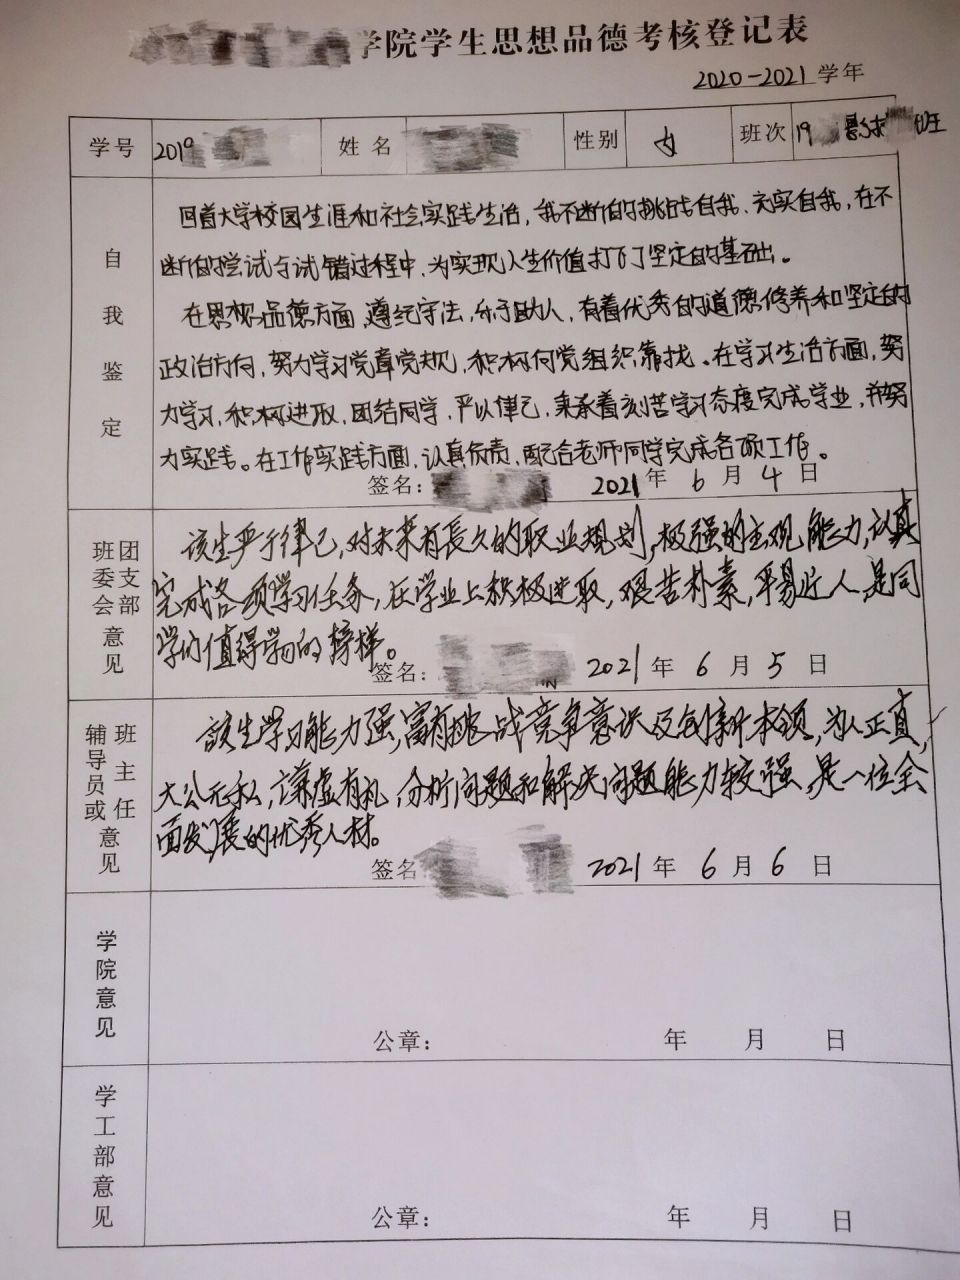 学院学生思想品德考核登记表
2020-2021学年
学号 2019 姓名 性别 女 班次 19 影才 班
自我鉴定
回首大学校园生涯和社会实践生活，我不断的挑战自我、充实自我，在不
断的尝试与试错过程中，为实现人生价值打下了坚定的基础。
在思想品德方面，遵纪守法，乐于助人，有着优秀的道德修养和坚定的
政治方向，努力学习党章党规，积极向党组织靠拢。在学习生活方面，努
力学习，积极进取，团结同学，严以律己，秉承着刻苦学习态度完成学业，并努
力实践。在工作实践方面，认真负责，配合老师同学完成各项工作。
签名： 2021年 6 月 4 日
班委会团支部意见
该生严于律己，对未来有長久的职业规划，极强的主观能力，认真
完成各项学习任务，在学业上积极进取，艰苦朴素，平易近人，是同
学们值得学习的榜样。
签名： 2021 年 6 月 5 日
辅导员或班主任意见
該生学习能力强，富有挑战竞争意识及创新本领，为人正直，
大公无私，谦虚有礼，分析问题和解决问题能力较强，是一位全
面发展的优秀人材。
签名 2021 年 6 月 6 日
学院意见
公章： 年 月 日
学工部意见
公章： 年 月 日